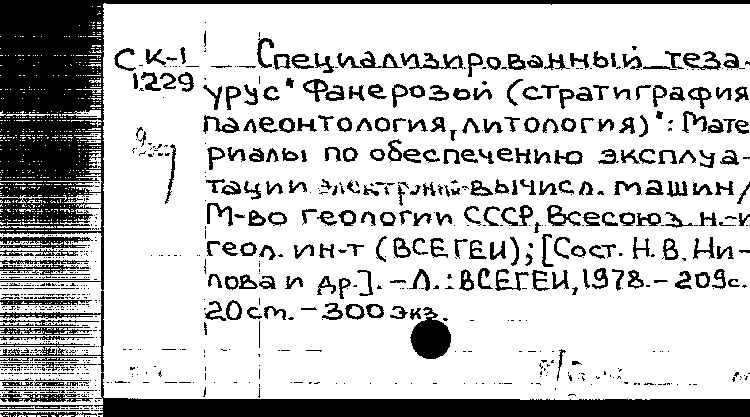 СК-1 Специализированный теза-
1229 урус "Фанерозой (стратиграфия
палеонтология, литология)": Мате
риалы по обеспечению эксплуа-
тации электронно-вычисл. машин /
М-во геологии СССР, Всесоюз. н.-и
геол. ин-т (ВСЕГЕИ); [Сост. Н. В. Ни-
лова и др.]. – Л.: ВСЕГЕИ, 1978. – 209с.
20 cm. – 300 экз.